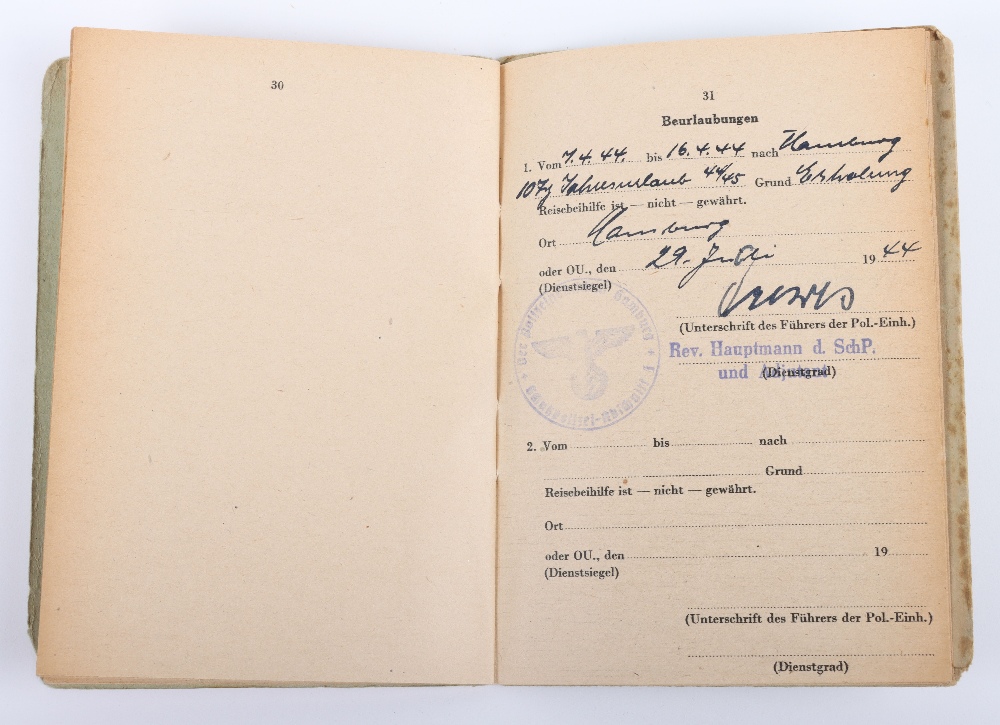 30
31
Beurlaubungen
1. Vom 7.4.44. bis 16.4.44 nach Hamburg
Jahresurlaub 44/45 Grund Erholung
Reisebeihilfe ist — nicht — gewährt.
Ort Hamburg
oder OU., den 29. Juli 1944
(Dienstsiegel)
(Unterschrift des Führers der Pol.-Einh.)
Rev. Hauptmann d. SchP.
und Adjutant
(Dienstgrad)
2. Vom bis nach
Grund
Reisebeihilfe ist — nicht — gewährt.
Ort
oder OU., den 19
(Dienstsiegel)
(Unterschrift des Führers der Pol.-Einh.)
(Dienstgrad)